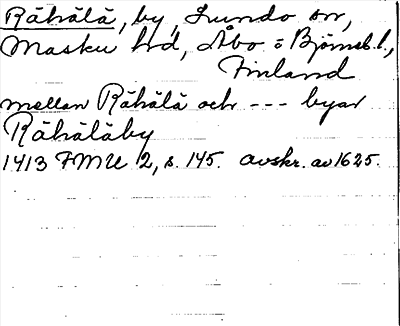 Rähälä, by, Lundo sn,
Masku hd, Åbo = Björneb. l.,
Finland
mellan Rähälä och --- byar
Rähäläby
1413 FMU 2, s. 145. avskr. av 1625.